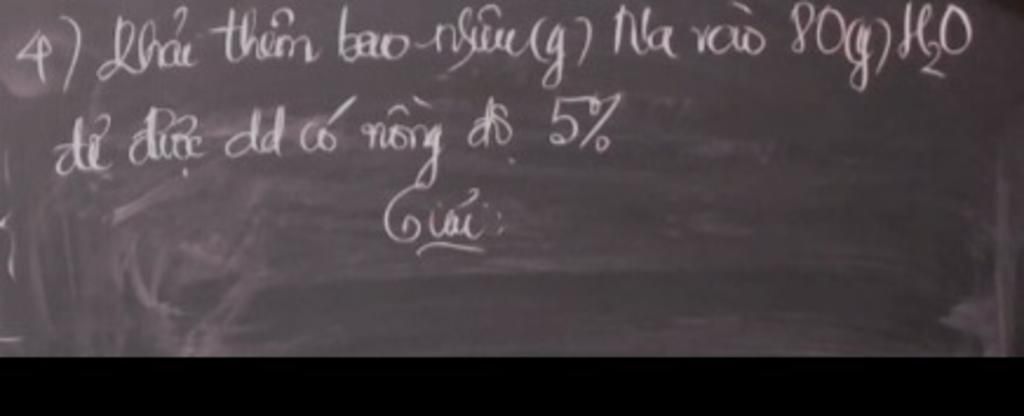 4) Phải thêm bao nhiêu (g) Na vào 80(g) H₂O
để được dd có nồng độ 5%
Giải: